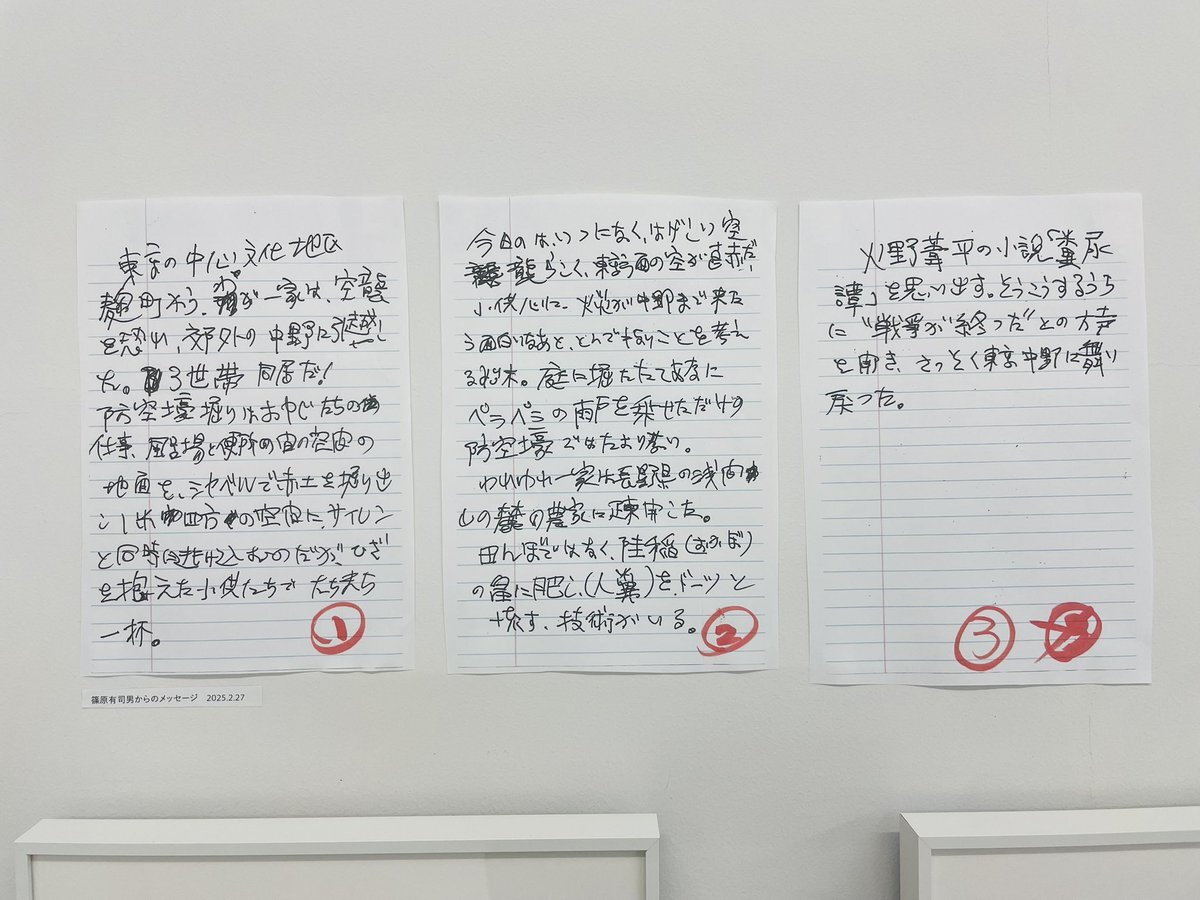 東京の中心文化地区
麹町から、わが一家は、空襲
を恐れ、郊外の中野に引越し
た。3世帯同居だ!
防空壕掘りはおやじたちの
仕事、風呂場と便所の間の空間の
地面を、シャベルで赤土を掘り出
し1米四方の空間に、サイレン
と同時に逃げ込むのだが、ひざ
を抱えた小供たちでたちまち
一杯。
1
今日のは、いつになく、はげしい空
襲らしく、東京方面の空が真赤だ、
小供心に、火災が中野まで来た
ら面白いなあと、とんでもないことを考え
る始末。庭に堀ったてあなに
ペラペラの雨戸を乗せただけの
防空壕ではたより無い。
われわれ一家は長野県の浅間
山の麓の農家に疎開した。
田んぼではなく、陸稲(おかぼ)
の畠に肥し(人糞)をドーッと
流す、技術がいる。
2
火野葦平の小説「糞尿
譚」を思い出す。そうこうするうち
に"戦争が終った"との大声
を聞き、さっそく東京中野に舞い
戻った。
3
篠原有司男からのメッセージ 2025.2.27